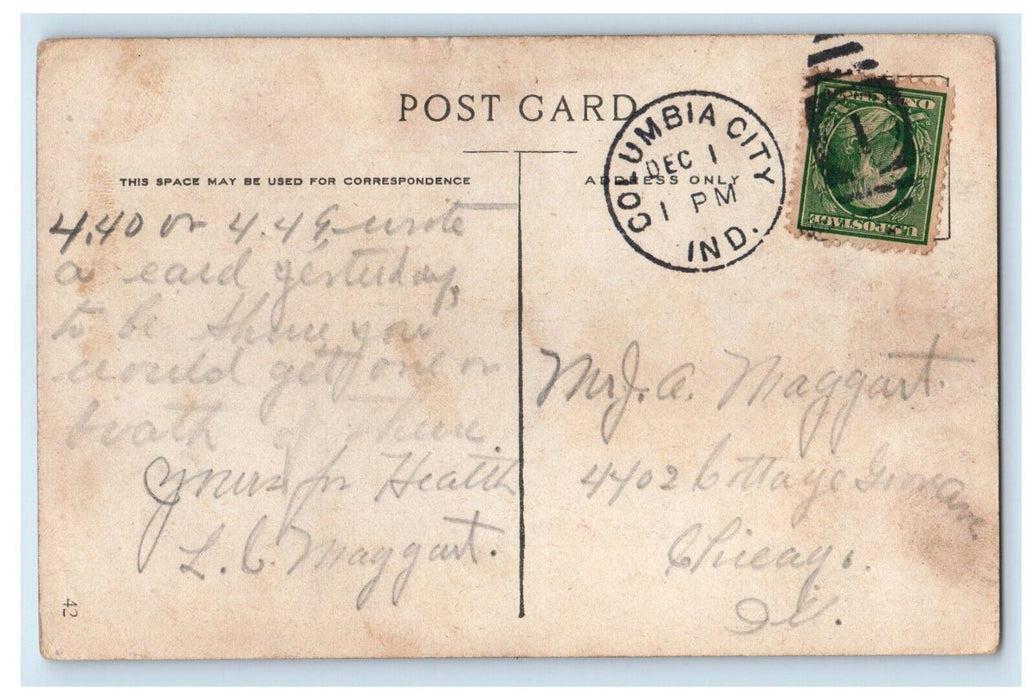 POST CARD
THIS SPACE MAY BE USED FOR CORRESPONDENCE
ADDRESS ONLY
COLUMBIA CITY
DEC 1
1 PM
IND.
U.S. POSTAGE
ON
4.40 or 4.49 wrote
a card yesterday
to be shure you
would get one or
boath of them
Yours for Health
L. C. Maggart.
Mr J. A. Maggart.
4402 Cottage Grove Ave.
Chicago.
Ill.
42